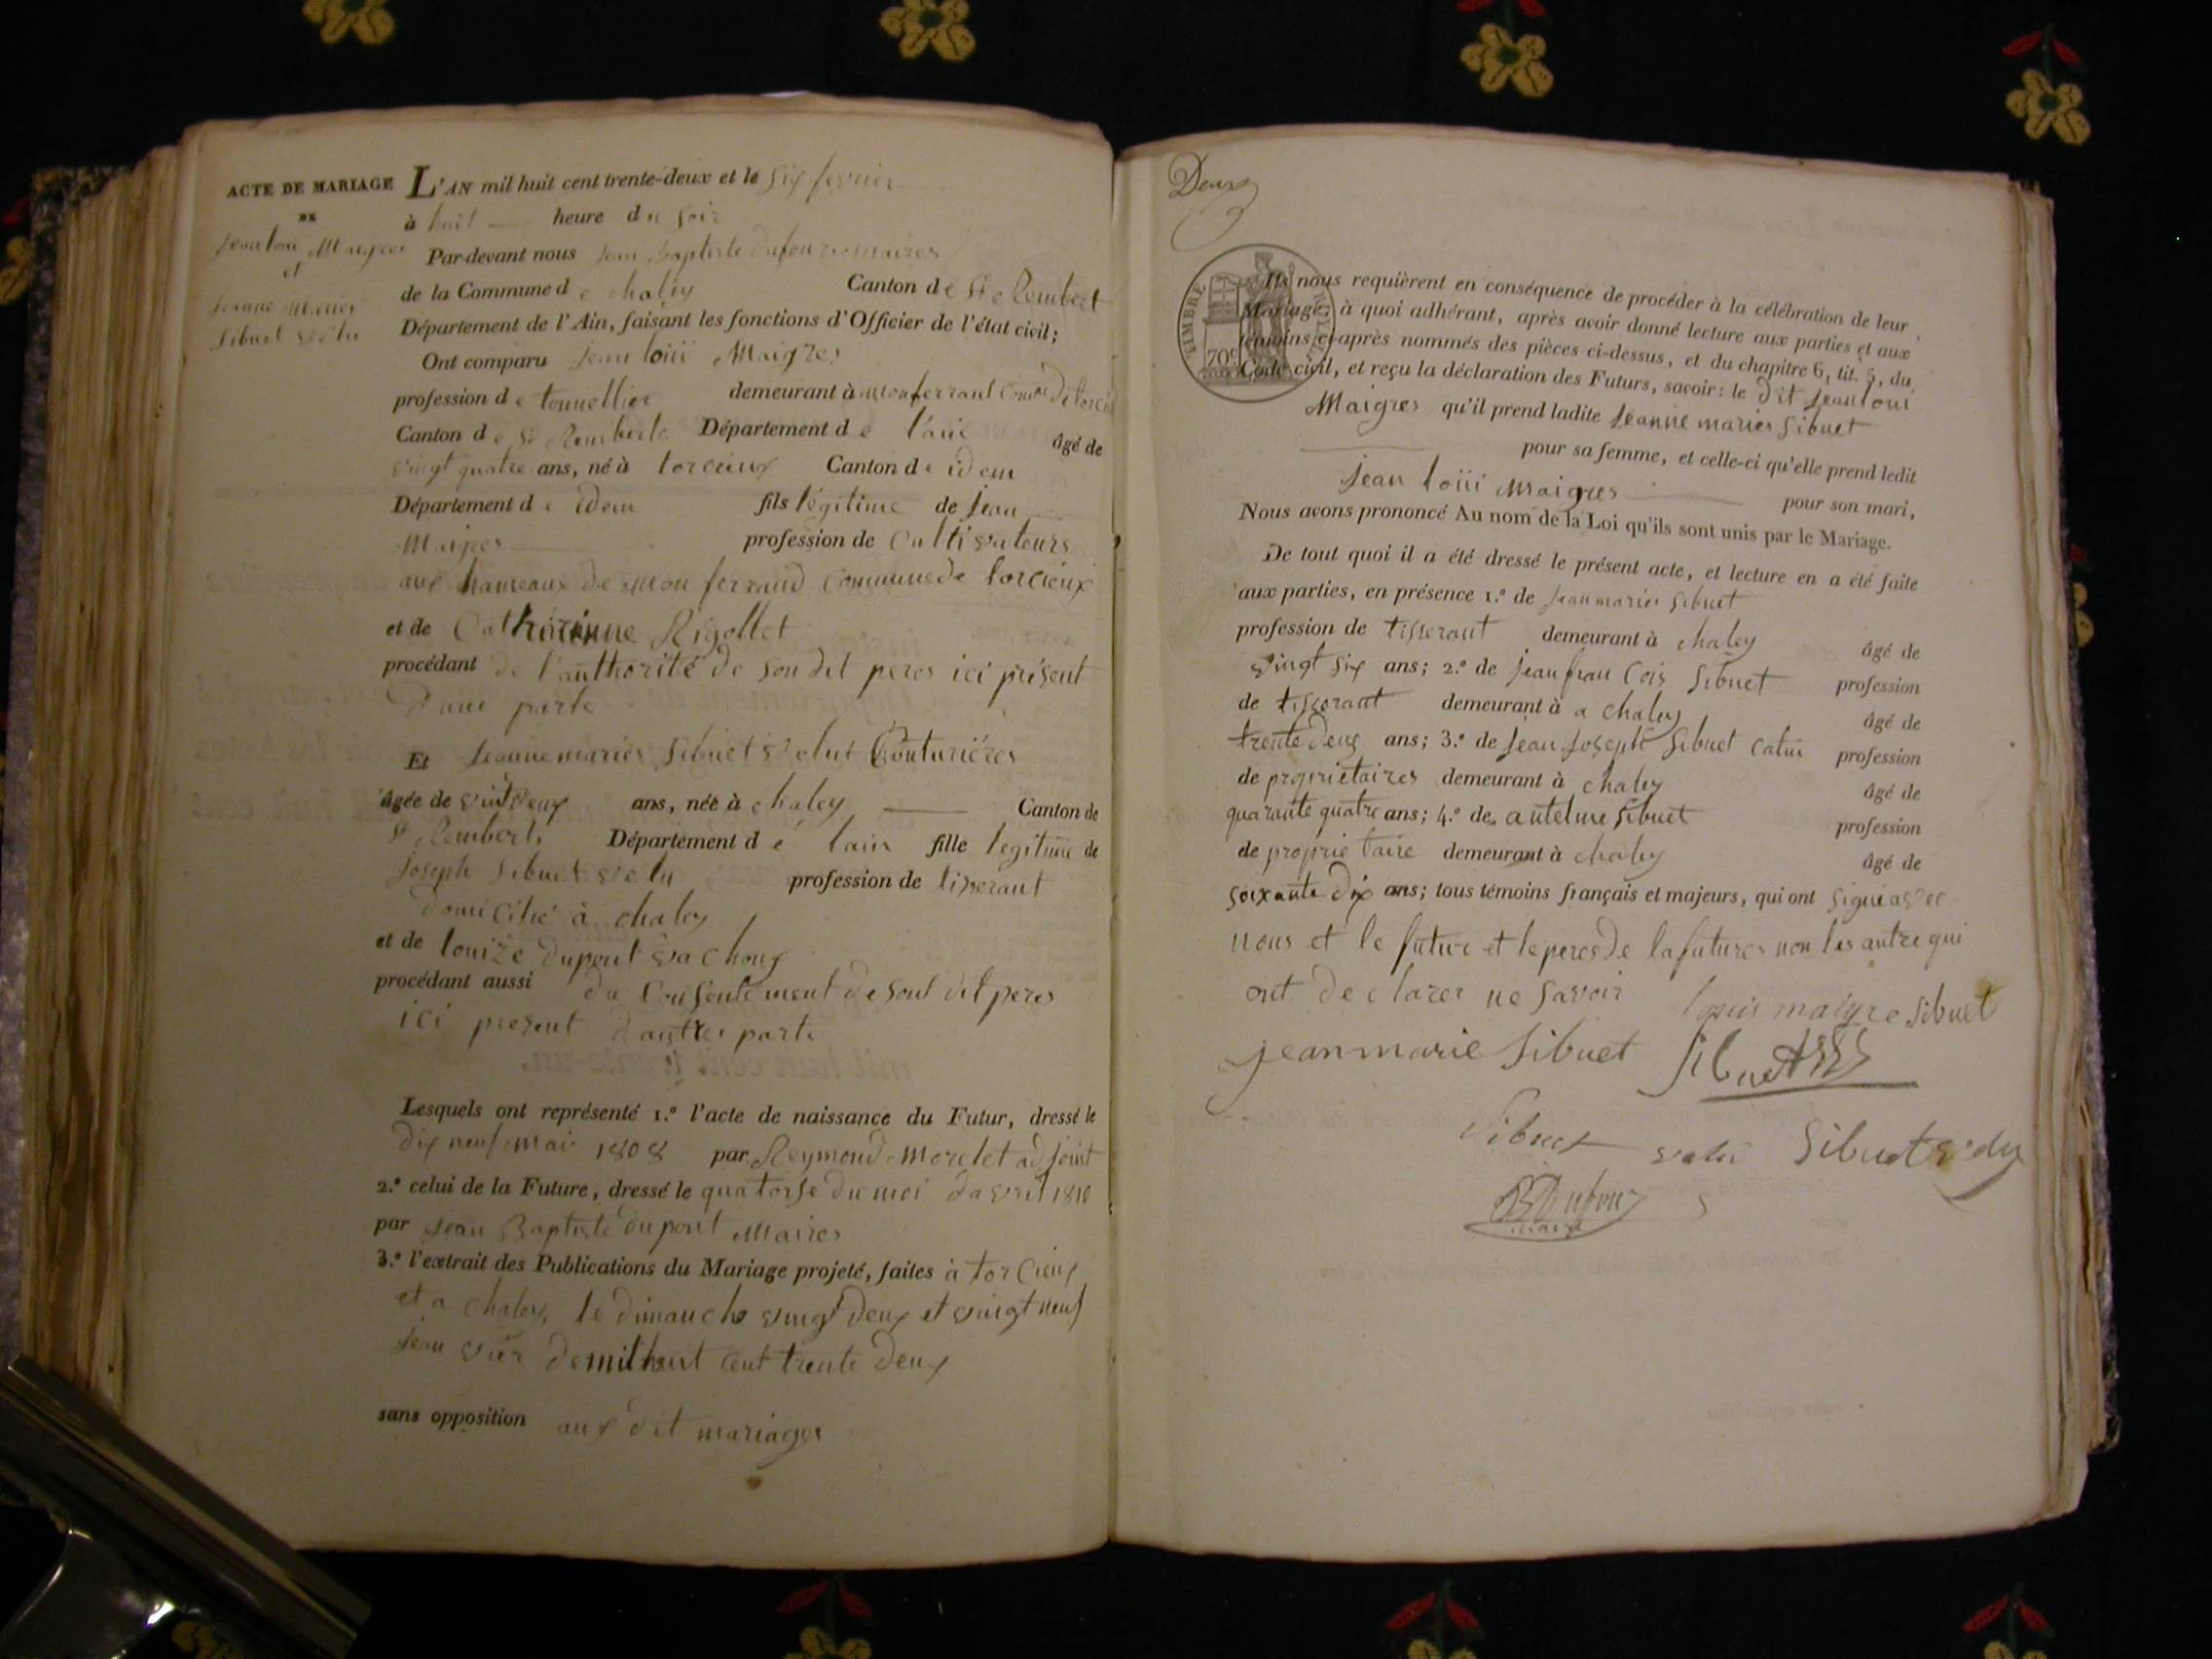 ACTE DE MARIAGE
DE
jean loui Maigres
et
jeanne maries
Sibuet velu
L'AN mil huit cent trente-deux et le six fevrier
à huit heure du soir
Par-devant nous jean Baptiste dufour maires
de la Commune de chaley Canton de St Rembert
Département de l'Ain, faisant les fonctions d'Officier de l'état civil;
Ont comparu jean loui Maigres
profession de tonnellier demeurant à monferrant
Canton de St Remberte Département de l'ain âgé de
vingt quatre ans, né à torcieux Canton de idem
Département de idem fils légitime de jean
Maigres profession de Cultivateurs
aux hameaux de mon ferrand commune de torcieux
et de Catharinne Rigollet
procédant de l'authorité de son dit peres ici présent
d'une parte
Et jeanne maries Sibuet velut Couturiéres
âgée de vint deux ans, née à chaley Canton de
St Remberts Département de lain fille legitime de
joseph Sibuet velu profession de tisserant
domicilié à chaley
et de louize dupont vachoux
procédant aussi du Consentement de sont dit peres
ici present d'autres parte
Lesquels ont représenté 1.º l'acte de naissance du Futur, dressé le
dix neuf mai 1808 par Reymond Morelet adjoint
2.º celui de la Future, dressé le quatorse du moi davril 1810
par jean Baptiste dupont Maires
3.º l'extrait des Publications du Mariage projeté, faites à torcieux
et a chaley, le dimanche vingt deux et vingt neuf
jean vier de mil huit cent trente deux
sans opposition aux dit mariages
Deux
TIMBRE ROYAL
70c
Ils nous requièrent en conséquence de procéder à la célébration de leur
Mariage: à quoi adhérant, après avoir donné lecture aux parties et aux
témoins ci-après nommés des pièces ci-dessus, et du chapitre 6, tit. 5, du
Code civil, et reçu la déclaration des Futurs, savoir: le dit jean loui
Maigres qu'il prend ladite jeanne maries Sibuet
pour sa femme, et celle-ci qu'elle prend ledit
jean loiii Maigres pour son mari,
Nous avons prononcé Au nom de la Loi qu'ils sont unis par le Mariage.
De tout quoi il a été dressé le présent acte, et lecture en a été faite
aux parties, en présence 1.º de jean maries Sibuet
profession de tisserant demeurant à chaley âgé de
vingt six ans; 2.º de jean fran Cois Sibuet profession
de tisserant demeurant à a chaley âgé de
trente deux ans; 3.º de jean joseph Sibuet catin profession
de proprietaires demeurant à chaley âgé de
quarante quatre ans; 4.º de antelme Sibuet profession
de proprie taire demeurant à chaley âgé de
soixante dix ans; tous témoins français et majeurs, qui ont signé avec
nous et le future et le peres de la futures non les autre qui
ont declarer ne savoir
louis maigre Sibuet
jean marie Sibuet Sibuet
Sibuet velu Sibuet
B Dufour
maire